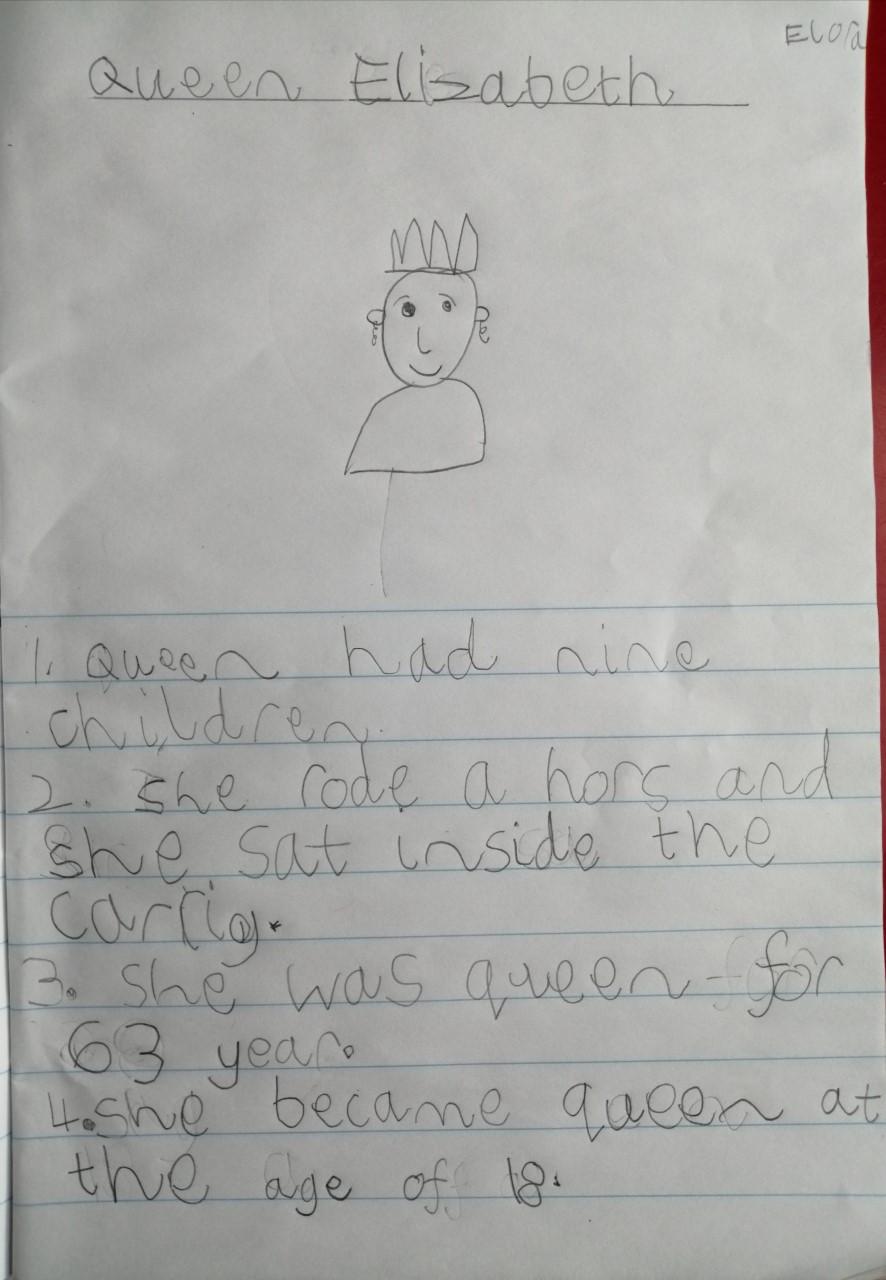 Elora
Queen Elisabeth
1. Queen had nine
children.
2. she rode a hors and
she sat inside the
carrig.
3. she was queen for
63 year.
4. she became queen at
the age of 18.